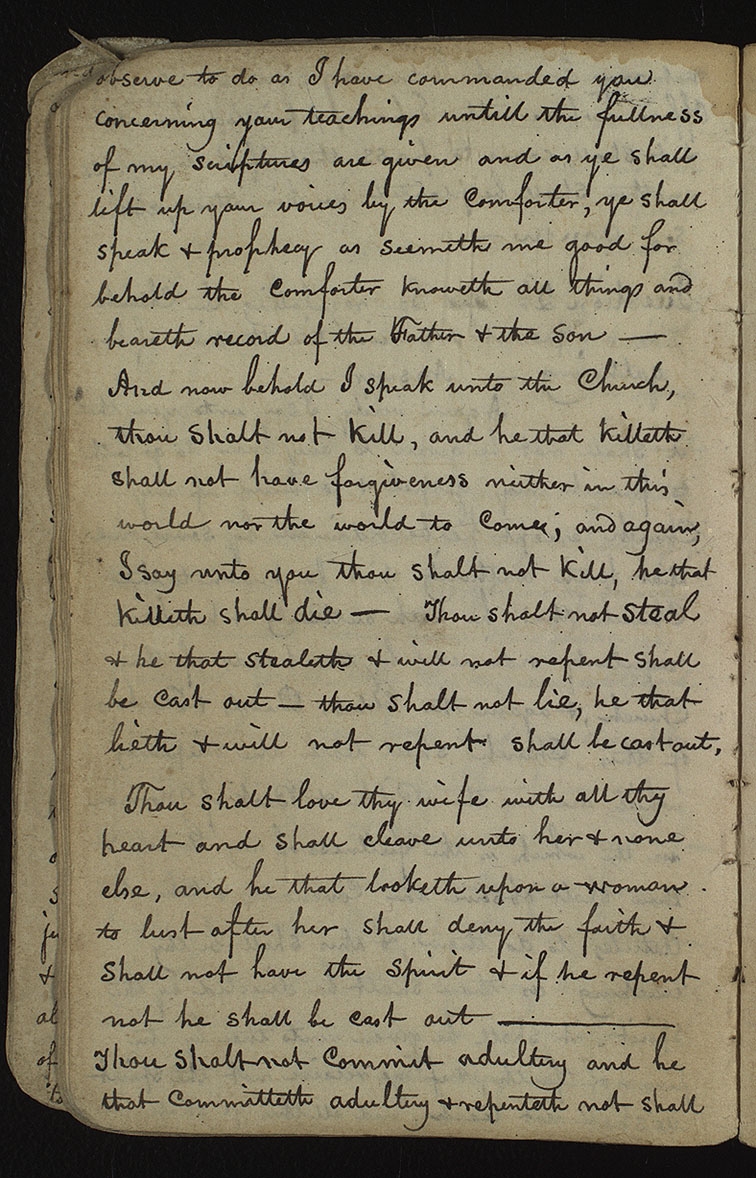 observe to do as I have commanded you
concerning your teachings untill the fullness
of my scriptures are given and as ye shall
lift up your voices by the Comforter, ye shall
speak & prophecy as seemeth me good for
behold the Comforter knoweth all things and
beareth record of the Father & the Son —
And now behold I speak unto the Church,
thou shalt not Kill, and he that Killeth
shall not have forgiveness neither in this
world nor the world to Come; and again,
I say unto you thou shalt not Kill, he that
Killeth shall die — Thou shalt not steal
& he that stealeth & will not repent shall
be Cast out — thou shalt not lie, he that
lieth & will not repent shall be cast out,
Thou shalt love thy wife with all thy
heart and shall cleave unto her & none
else, and he that looketh upon a woman
to lust after her shall deny the faith &
shall not have the Spirit & if he repent
not he shall be cast out —
Thou Shalt not Commit adultery and he
that Committeth adultery & repenteth not shall
ju
&
al
of
to